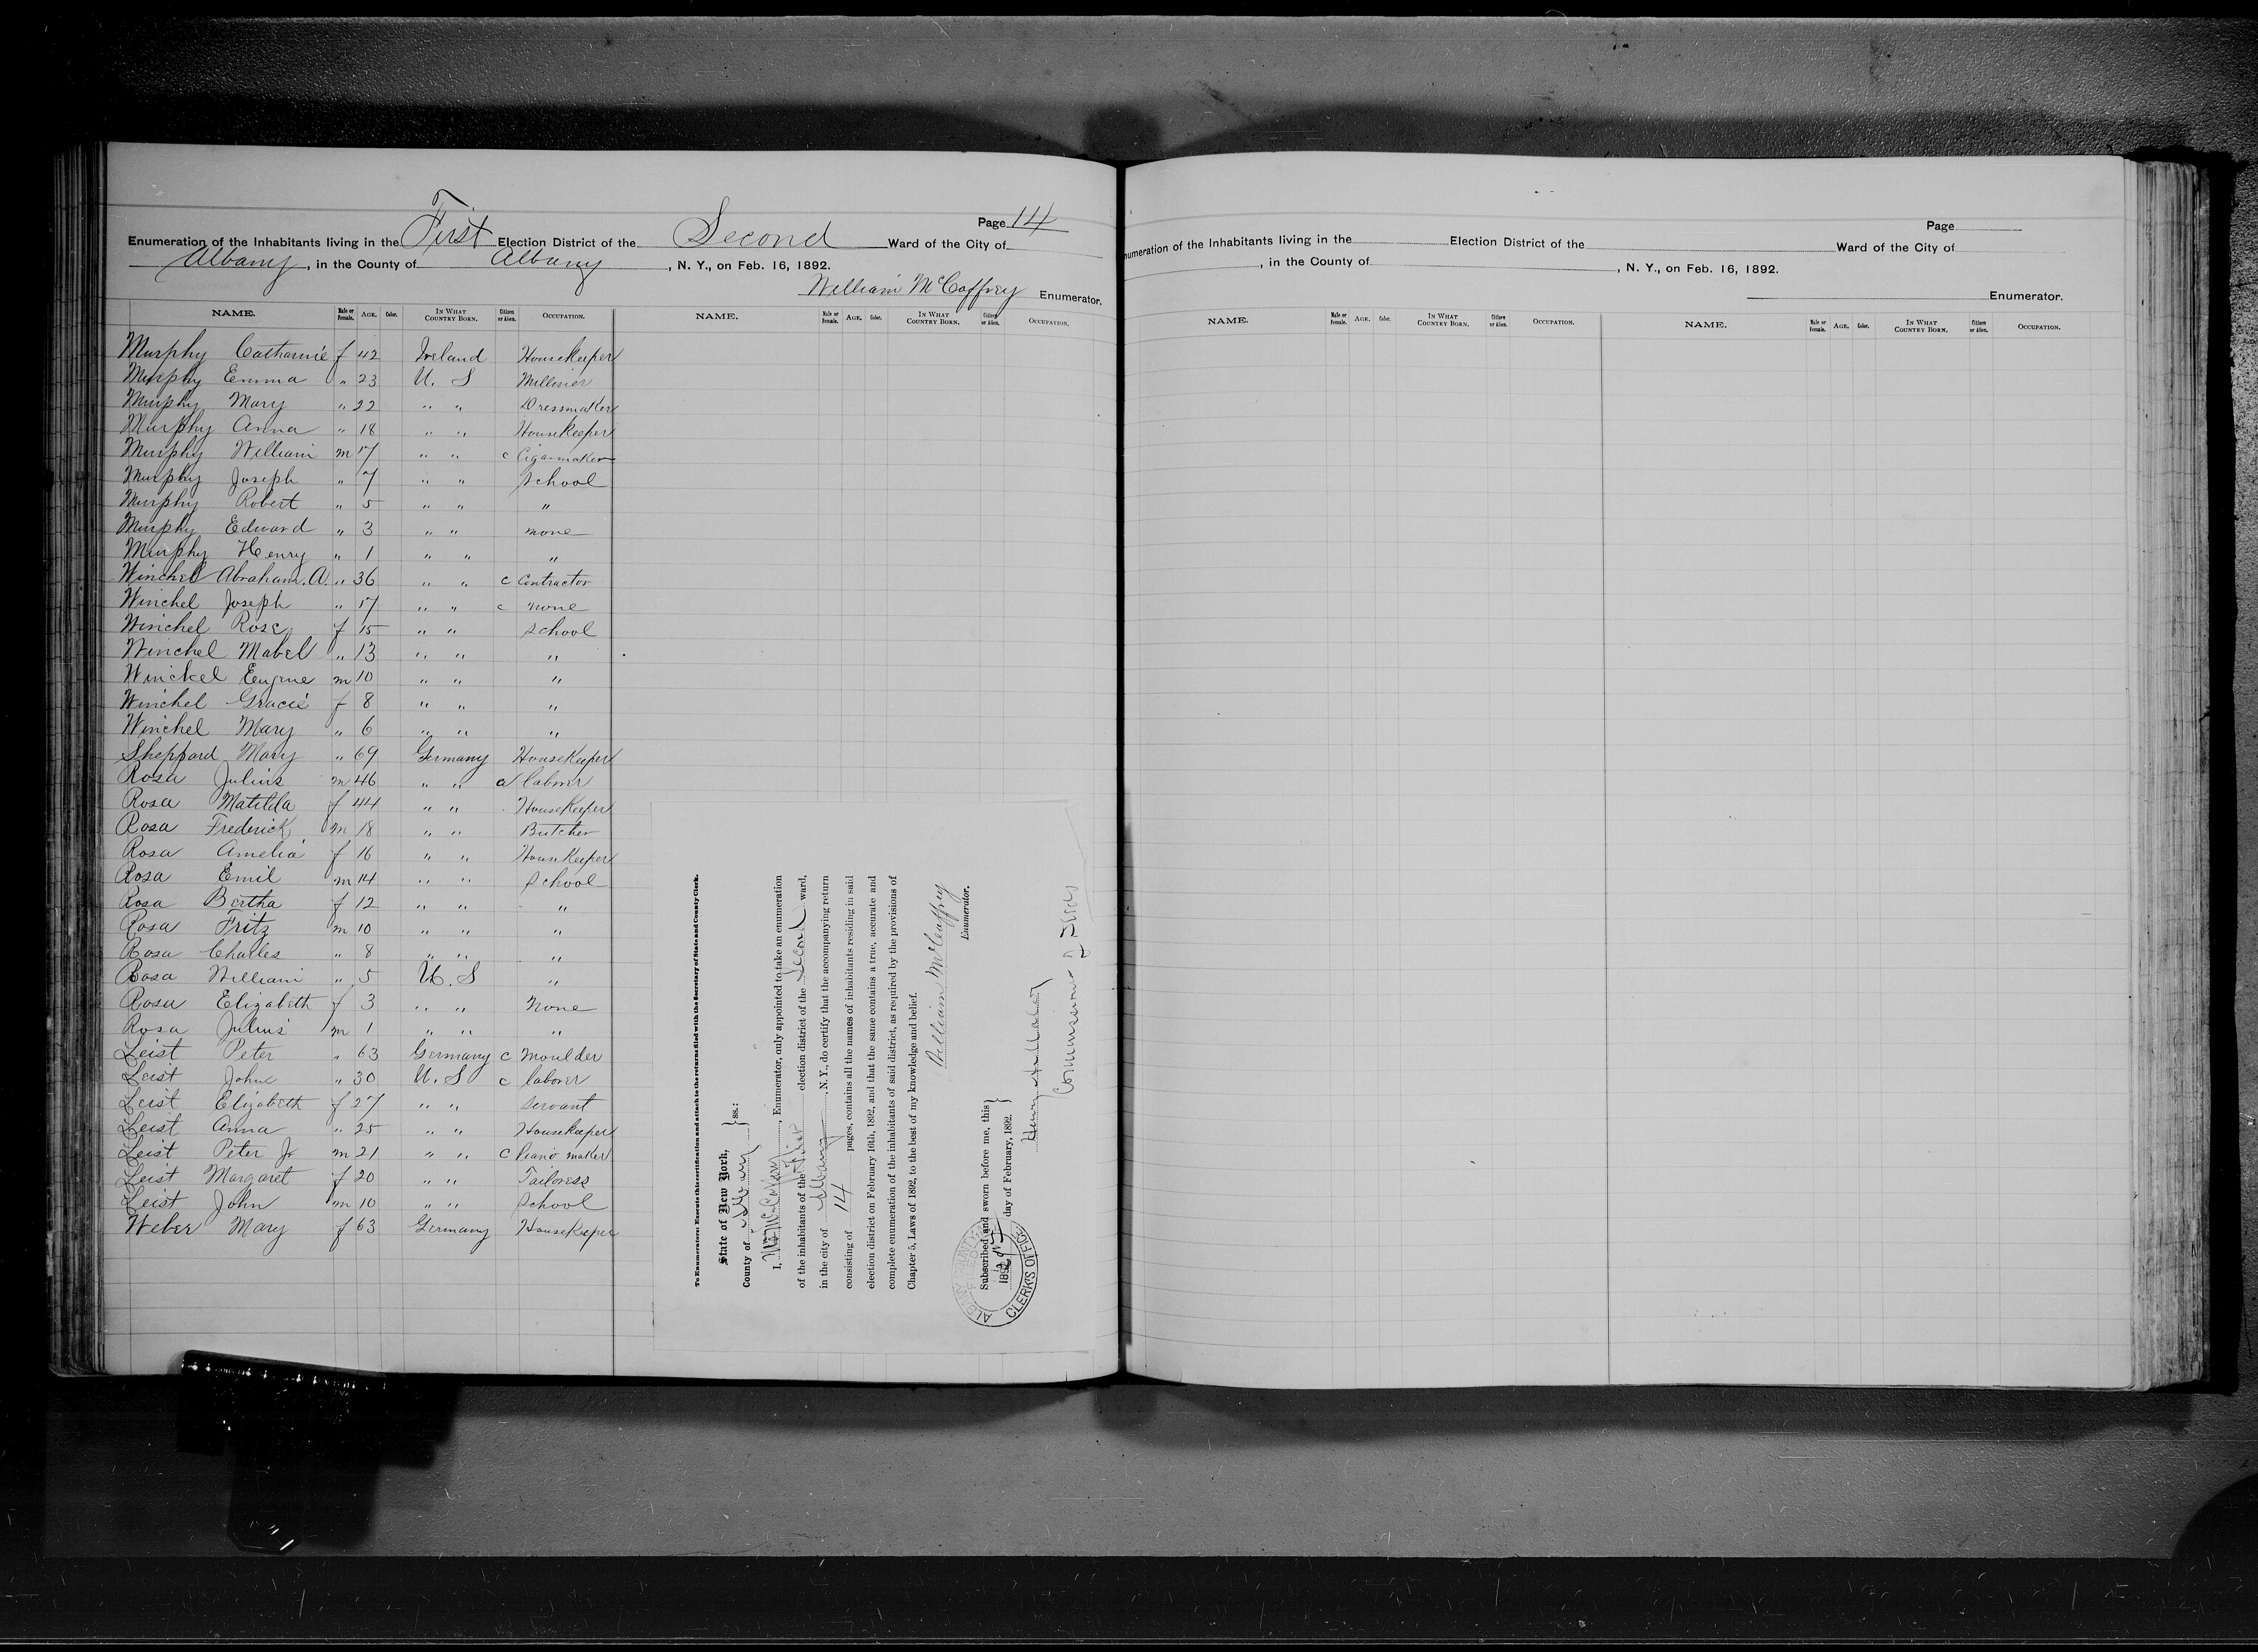 Page 14
Enumeration of the Inhabitants living in the First Election District of the Second Ward of the City of
Albany, in the County of Albany, N. Y., on Feb. 16, 1892.
William McCaffrey Enumerator.
NAME. Male or Female. AGE. Color. IN WHAT COUNTRY BORN. Citizen or Alien. OCCUPATION. NAME. Male or Female. AGE. Color. IN WHAT COUNTRY BORN. Citizen or Alien. OCCUPATION.
Murphy Catharine f 42 Ireland Housekeeper
Murphy Emma " 23 U. S Milliner
Murphy Mary " 22 " " Dressmaker
Murphy Anna " 18 " " Housekeeper
Murphy William m 17 " " c Cigarmaker
Murphy Joseph " 7 " " School
Murphy Robert " 5 " " "
Murphy Edward " 3 " " none
Murphy Henry " 1 " " "
Winchel Abraham. A. " 36 " " c Contractor
Winchel Joseph " 17 " " c none
Winchel Rose f 15 " " School
Winchel Mabel " 13 " " "
Winckel Eugene m 10 " " "
Winchel Gracie f 8 " " "
Winchel Mary " 6 " " "
Sheppard Mary " 69 Germany Housekeeper
Rosa Julius m 46 " " a laborer
Rosa Matilda f 44 " " Housekeeper
Rosa Frederick m 18 " " Butcher
Rosa Amelia f 16 " " Housekeeper
Rosa Emil m 14 " " School
Rosa Bertha f 12 " " "
Rosa Fritz m 10 " " "
Rosa Charles " 8 " " "
Rosa William " 5 U. S "
Rosa Elizabeth f 3 " " None
Rosa Julius m 1 " " "
Leist Peter " 63 Germany c Moulder
Leist John " 30 U. S c laborer
Leist Elizabeth f 27 " " Servant
Leist Anna " 25 " " Housekeeper
Leist Peter Jr m 21 " " c Piano maker
Leist Margaret f 20 " " Tailoress
Leist John m 10 " " School
Weber Mary f 63 Germany Housekeeper
To Enumerators: Execute this certification and attach to the returns filed with the Secretary of State and County Clerk.
State of New York,
County of Albany } ss.:
I, Wm McCaffrey, Enumerator, duly appointed to take an enumeration
of the inhabitants of the First election district of the Second ward,
in the city of Albany, N. Y., do certify that the accompanying return
consisting of 14 pages, contains all the names of inhabitants residing in said
election district on February 16th, 1892, and that the same contains a true, accurate and
complete enumeration of the inhabitants of said district, as required by the provisions of
Chapter 5, Laws of 1892, to the best of my knowledge and belief.
William McCaffrey
Enumerator.
Subscribed and sworn before me, this
day of February, 1892. }
Henry
Commissioner of Deeds
ALBANY COUNTY
FILED
1892
CLERK'S OFFICE
Page
Enumeration of the Inhabitants living in the Election District of the Ward of the City of
, in the County of , N. Y., on Feb. 16, 1892.
Enumerator.
NAME. Male or Female. AGE. Color. IN WHAT COUNTRY BORN. Citizen or Alien. OCCUPATION. NAME. Male or Female. AGE. Color. IN WHAT COUNTRY BORN. Citizen or Alien. OCCUPATION.